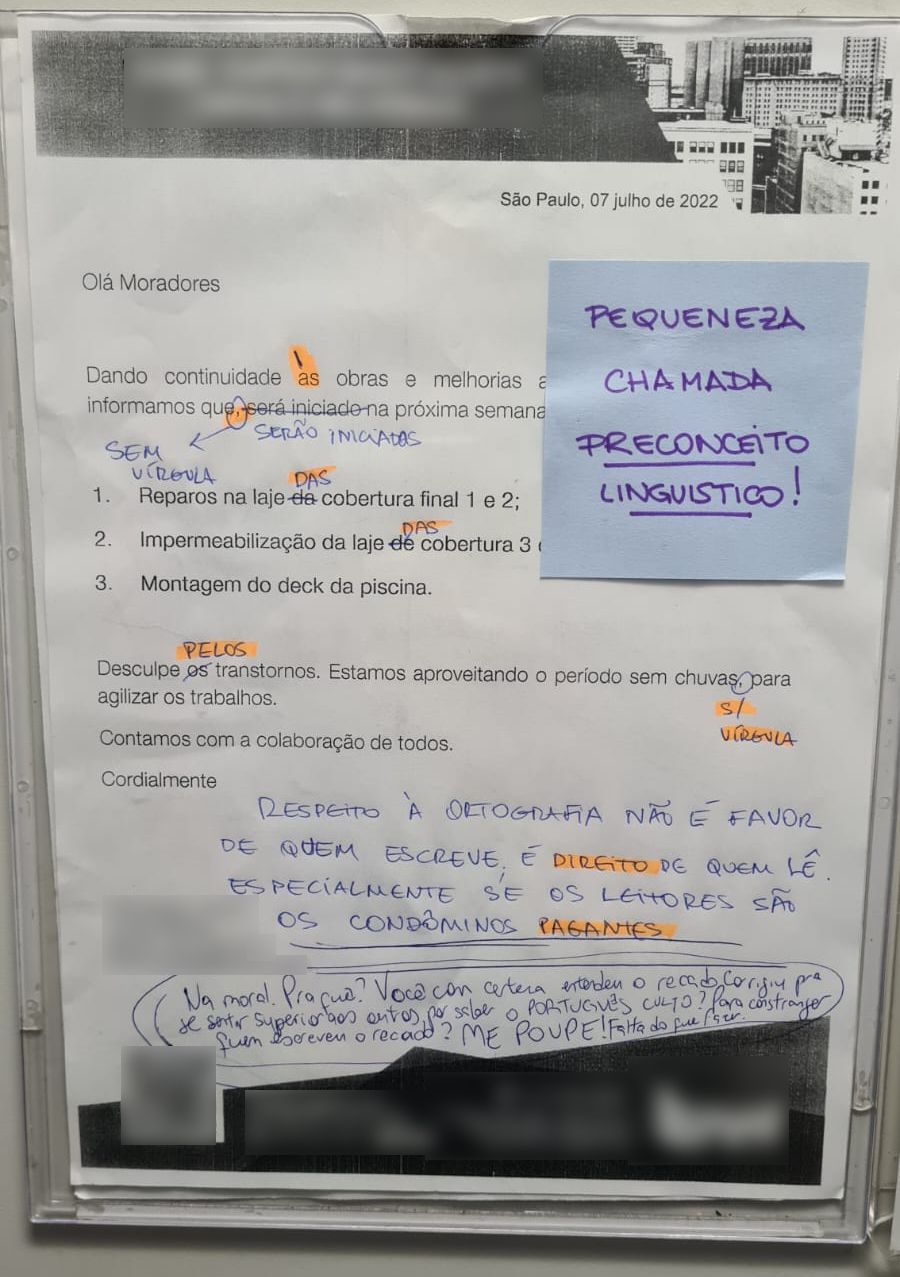 São Paulo, 07 julho de 2022
Olá Moradores
PEQUENEZA
CHAMADA
PRECONCEITO
LINGUISTICO!
Dando continuidade as obras e melhorias
informamos que, será iniciado na próxima semana
SERÃO INICIADOS
SEM
VÍRGULA
DAS
1. Reparos na laje da cobertura final 1 e 2;
DAS
2. Impermeabilização da laje de cobertura 3
3. Montagem do deck da piscina.
PELOS
Desculpe os transtornos. Estamos aproveitando o período sem chuvas, para
agilizar os trabalhos.
S/
VÍRGULA
Contamos com a colaboração de todos.
Cordialmente
RESPEITO À ORTOGRAFIA NÃO É FAVOR
DE QUEM ESCREVE, É DIREITO DE QUEM LÊ.
ESPECIALMENTE SE OS LEITORES SÃO
OS CONDÔMINOS PAGANTES.
Na moral. Pra quê? Você con certeza entendeu o recado. Corrigiu pra
se sentir superior aos outros por saber o PORTUGUÊS CULTO? Para constranger
quem escreveu o recado? ME POUPE! Falta do que fazer.